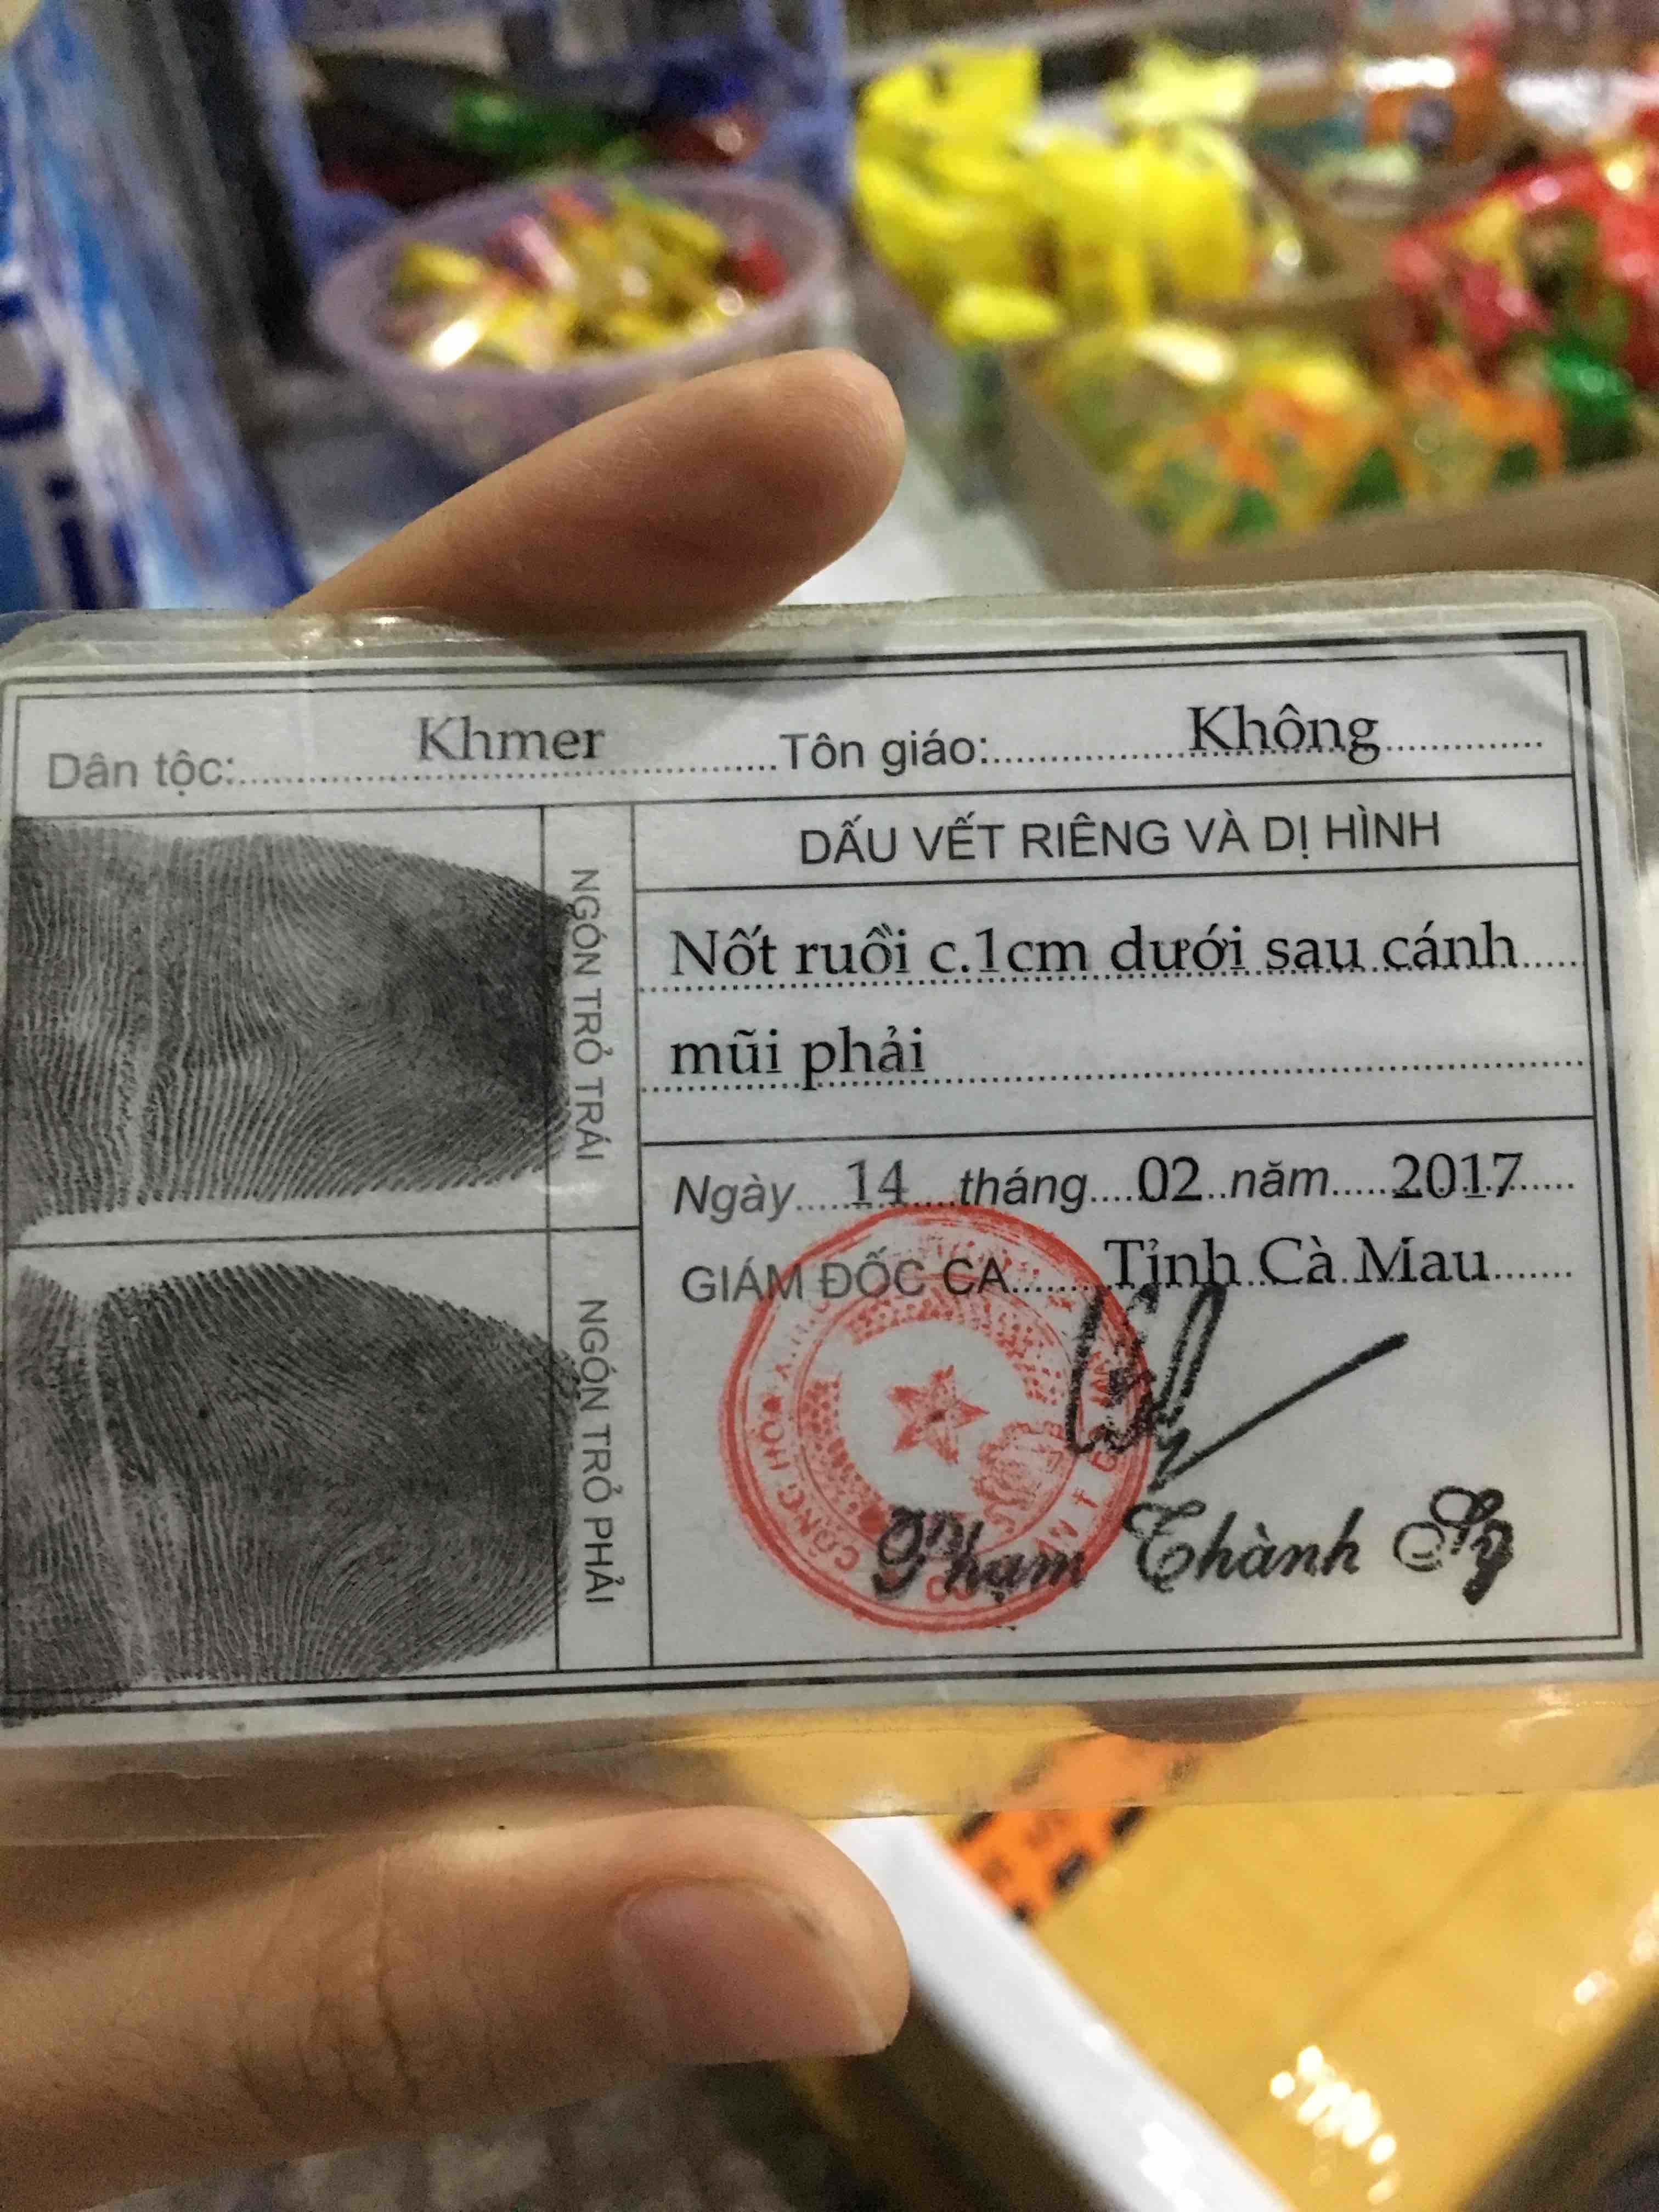 Dân tộc: Khmer Tôn giáo: Không
NGÓN TRỎ TRÁI
DẤU VẾT RIÊNG VÀ DỊ HÌNH
Nốt ruồi c.1cm dưới sau cánh
mũi phải
Ngày 14 tháng 02 năm 2017
GIÁM ĐỐC CA Tỉnh Cà Mau
NGÓN TRỎ PHẢI
CÔNG HÒA X.H.C
Phạm Thành Sỹ